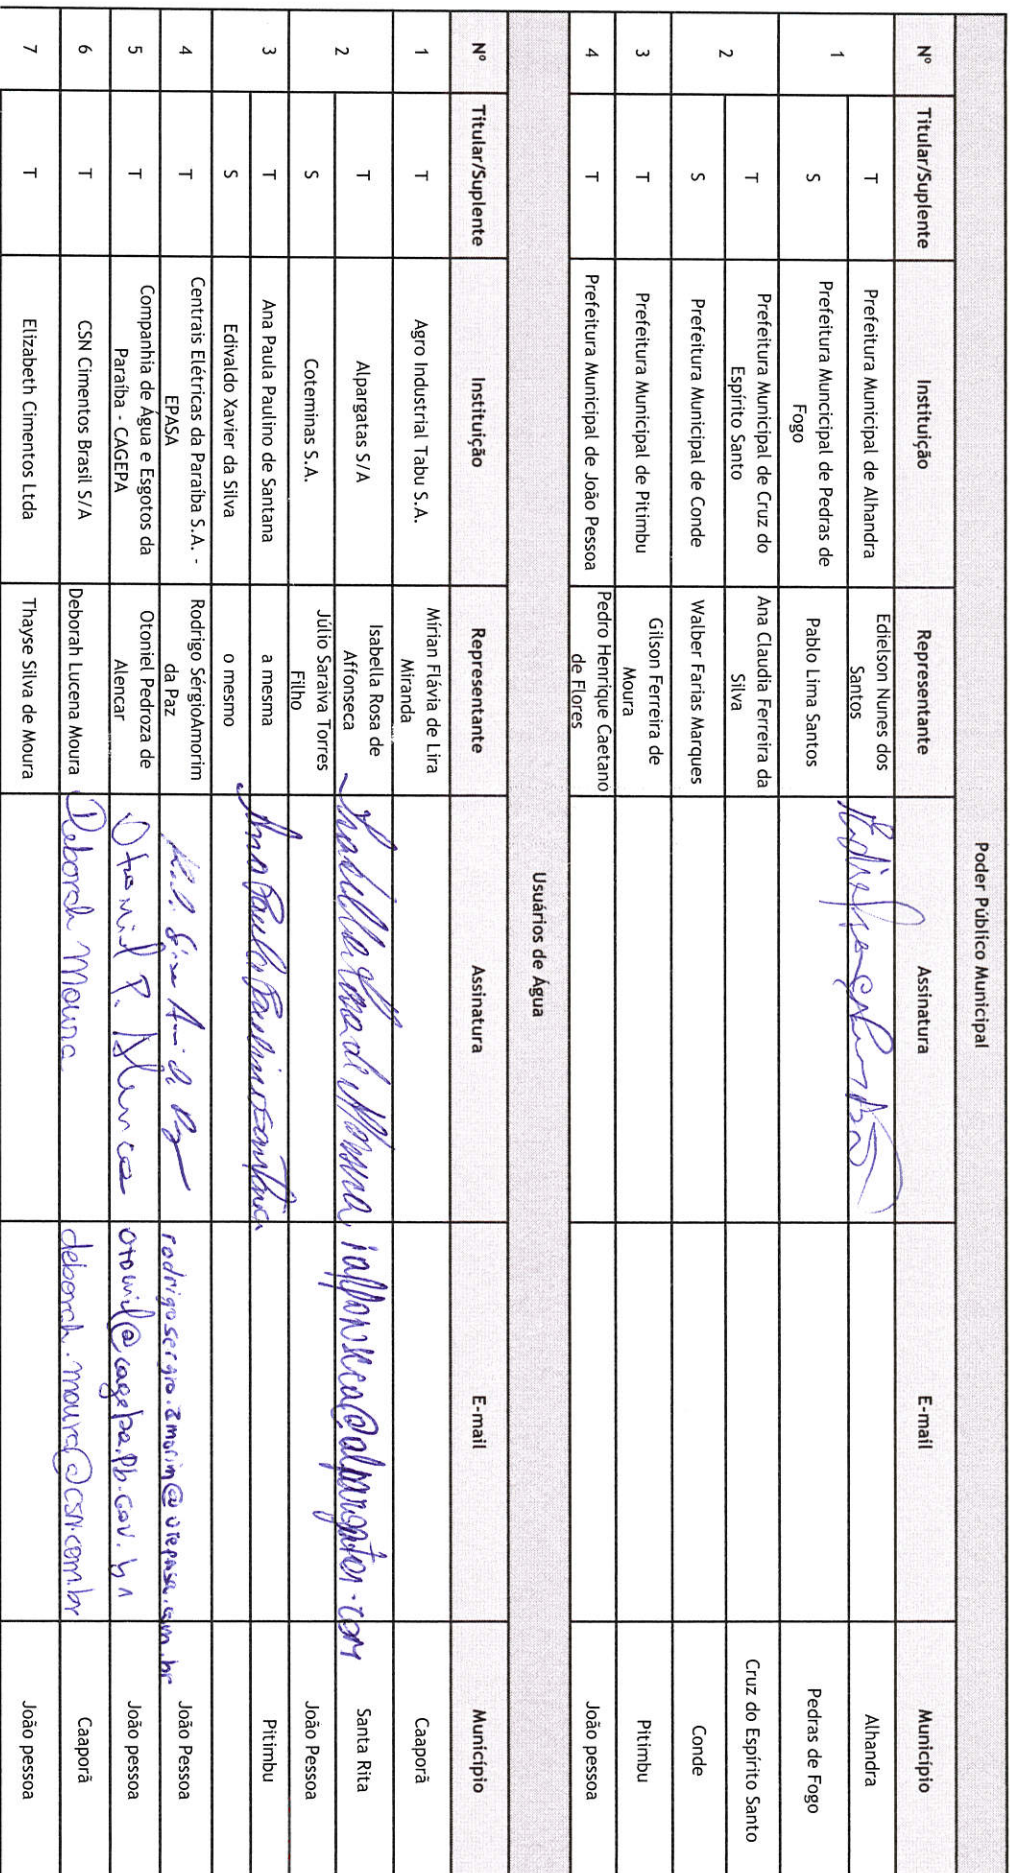 Poder Público Municipal
Nº Titular/Suplente Instituição Representante Assinatura E-mail Município
1 T Prefeitura Municipal de Alhandra Edielson Nunes dos Santos Alhandra
S Prefeitura Muncicipal de Pedras de Fogo Pablo Lima Santos Pedras de Fogo
2 T Prefeitura Municipal de Cruz do Espírito Santo Ana Claudia Ferreira da Silva Cruz do Espírito Santo
S Prefeitura Municipal de Conde Walber Farias Marques Conde
3 T Prefeitura Municipal de Pitimbu Gilson Ferreira de Moura Pitimbu
4 T Prefeitura Municipal de João Pessoa Pedro Henrique Caetano de Flores João pessoa
Usuários de Água
Nº Titular/Suplente Instituição Representante Assinatura E-mail Município
1 T Agro Industrial Tabu S.A. Mírian Flávia de Lira Miranda Caaporã
2 T Alpargatas S/A Isabella Rosa de Affonseca Isabella Rosa de Affonseca iaffonseca@alpargatas.com Santa Rita
S Coteminas S.A. Júlio Saraiva Torres Filho João Pessoa
3 T Ana Paula Paulino de Santana a mesma Ana Paula Paulino Santana Pitimbu
S Edivaldo Xavier da Silva o mesmo
4 T Centrais Elétricas da Paraíba S.A. - EPASA Rodrigo SérgioAmorim da Paz rodrigosergio.amorim@utepasa.com.br João Pessoa
5 T Companhia de Água e Esgotos da Paraíba - CAGEPA Otoniel Pedroza de Alencar Otoniel P. Alencar otoniel@cagepa.pb.gov.br João pessoa
6 T CSN Cimentos Brasil S/A Deborah Lucena Moura Deborah Moura deborah.moura@csn.com.br Caaporã
7 T Elizabeth Cimentos Ltda Thayse Silva de Moura João pessoa